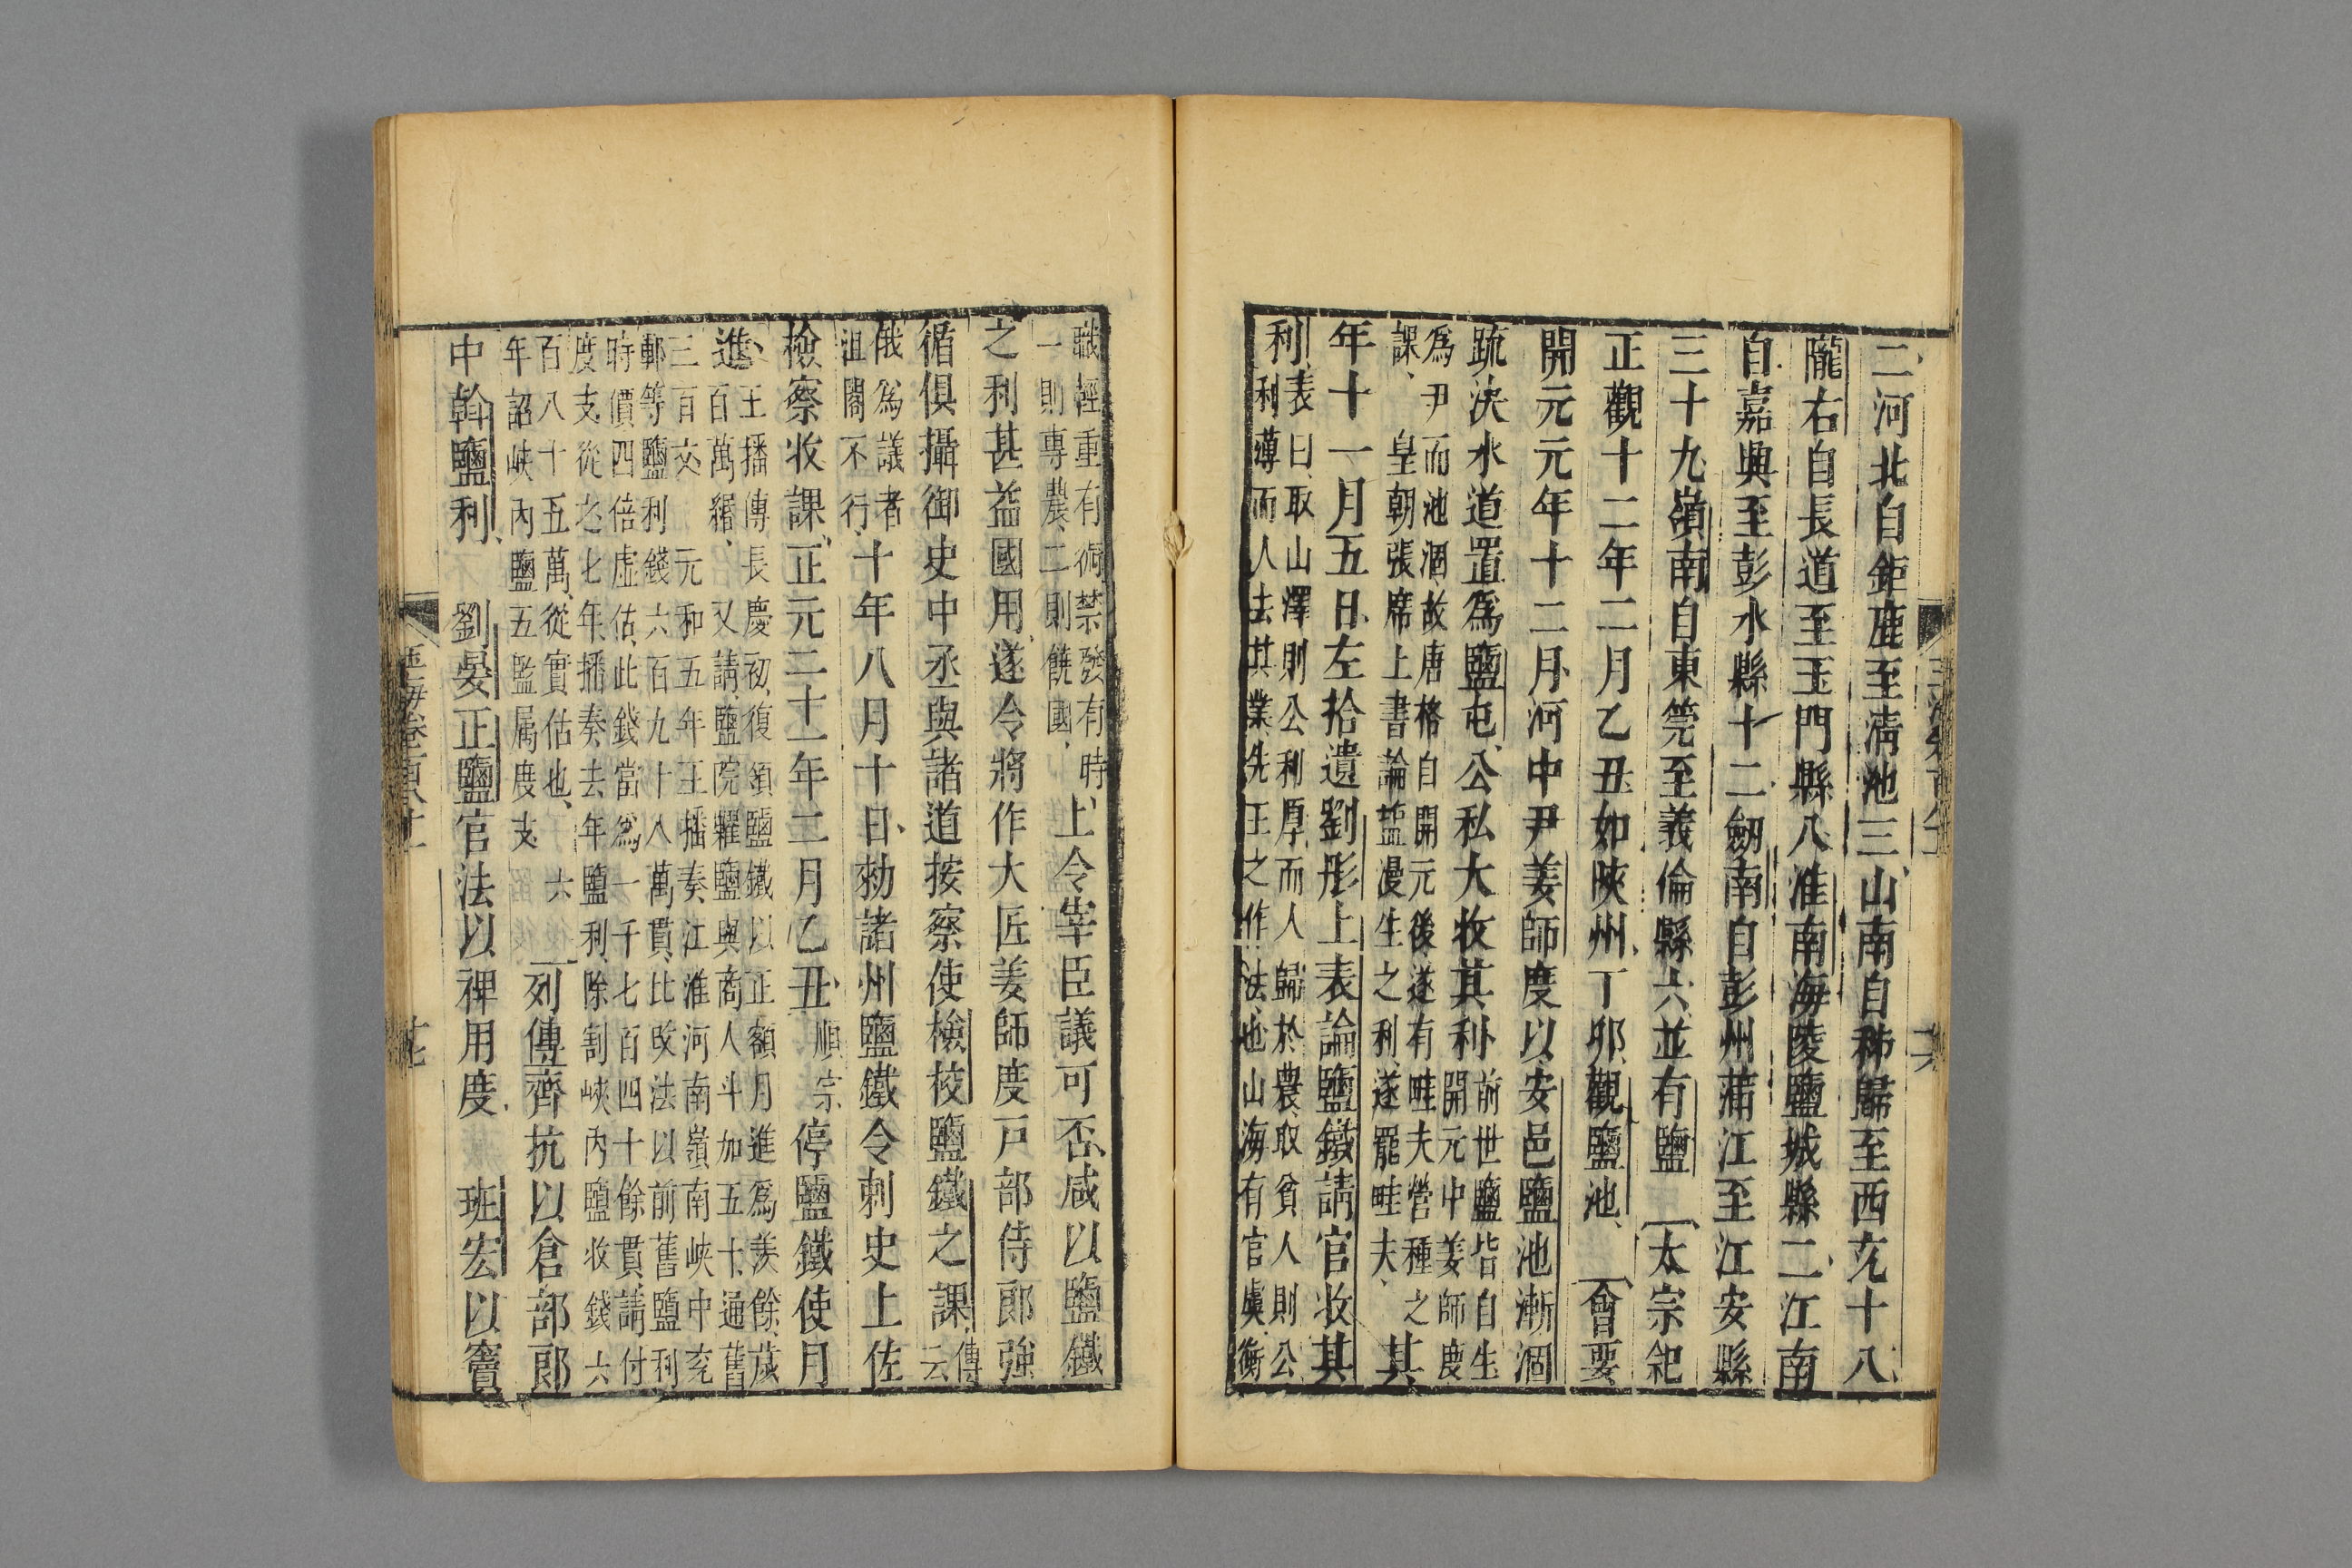 二河北自鉅鹿至淸池三山南自秭歸至西充十八
隴右自長道至玉門縣八淮南海陵鹽城縣二江南
自嘉興至彭水縣十二劒南自彭州蒲江至江安縣
三十九嶺南自東筦至義倫縣六並有鹽 太宗紀
正觀十二年二月乙丑如陝州丁卯觀鹽池 會要
開元元年十二月河中尹姜師度以安邑鹽池漸涸
䟽决水道置爲鹽屯公私大收其利
前世鹽皆自生
開元中姜師度
爲尹而池涸故唐格自開元後遂有畦夫營種之
課 皇朝張席上書論鹽漫生之利遂罷畦夫
其
年十一月五日左拾遺劉彤上表論鹽鐵請官收其
利
表曰取山澤則公利厚而人歸於農取貧人則公
利薄而人去其業先王之作法也山海有官虞衡
職輕重有術禁發有時
一則專農二則饒國
上令宰臣議可否咸以鹽鐵
之利甚益國用遂令將作大匠姜師度戸部侍郎強
循俱攝御史中丞與諸道按察使檢校鹽鐵之課
傳
云
俄爲議者
沮閣不行
十年八月十日勑諸州鹽鐵令刺史上佐
檢察收課正元二十一年二月乙丑
順宗
停鹽鐵使月
進
王播傳長慶初復領鹽鐵以正額月進爲羨餘歲
百萬緡 又請鹽院糶鹽與商人斗加五十通舊
三百文 元和五年王播奏江淮河南嶺南峽中兖
鄆等鹽利錢六百九十八萬貫比改法以前舊鹽利
時價四倍虛估此錢當爲一千七百四十餘貫請付
度支從之七年播奏去年鹽利除割峽内鹽收錢六
百八十五萬從實估也 六
年詔峽內鹽五監屬度支
列傳齊抗以倉部郎
中斡鹽利 劉晏正鹽官法以裨用度 班宏以竇
玉海卷一百八十一
廿七